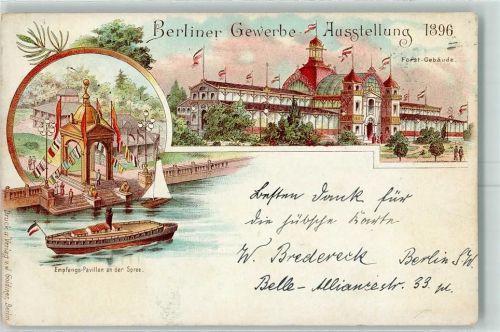 Berliner Gewerbe-Ausstellung 1896.
Forst-Gebäude.
Empfangs-Pavillon an der Spree.
Besten Dank für
die hübsche Karte
W. Bredereck Berlin S.W.
Belle-Alliancestr. 33.
Druck u. Verlag v. J. Goldiner, Berlin